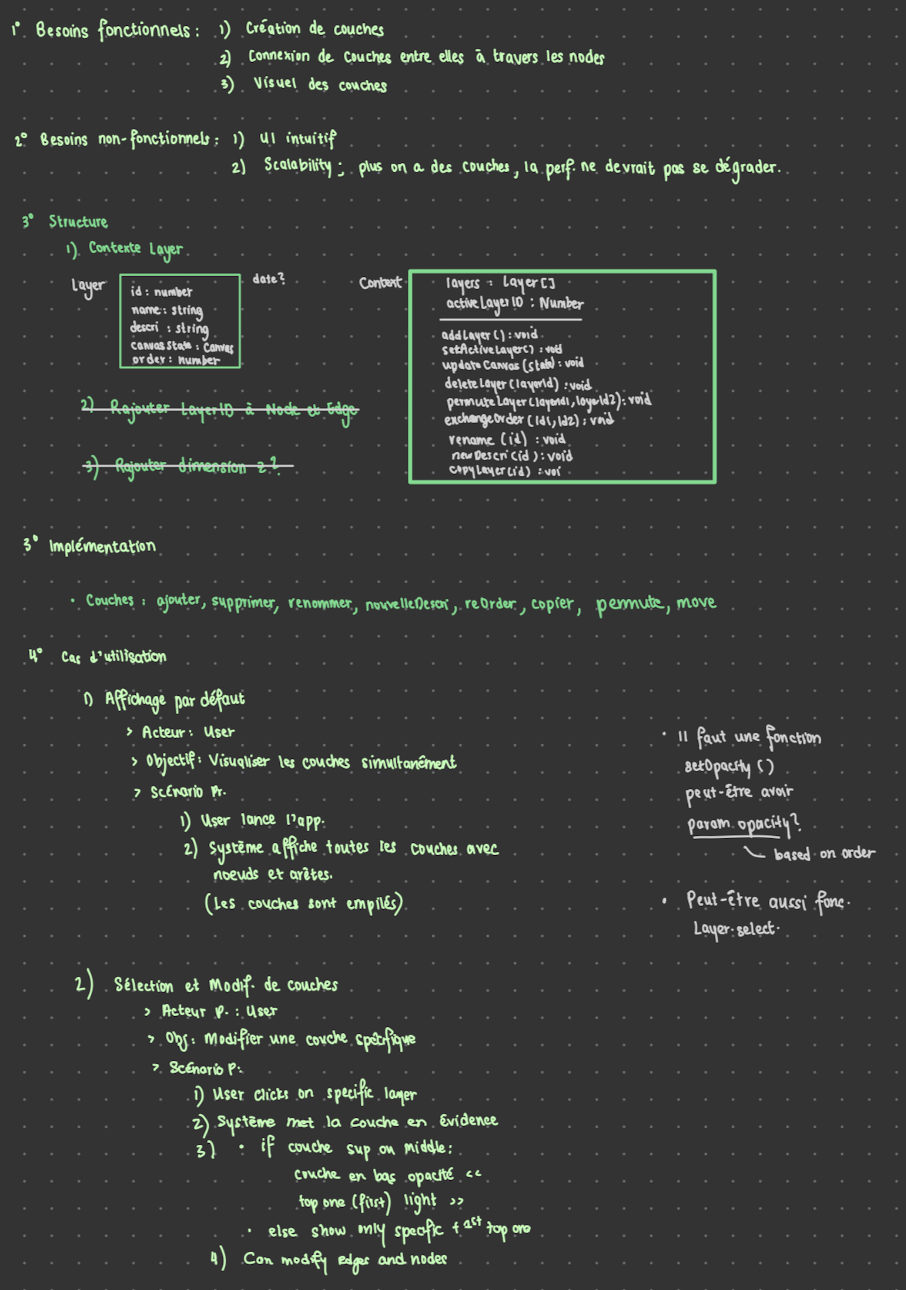 1° Besoins fonctionnels : 1) Création de couches
2) Connexion de couches entre elles à travers les nodes
3) Visuel des couches
2° Besoins non-fonctionnels : 1) UI intuitif
2) Scalability ; plus on a des couches, la perf. ne devrait pas se dégrader.
3° Structure
1) Contexte Layer
Layer
id : number
name : string
descri : string
canvasState : Canvas
order : number
date?
Context
layers : Layer []
activeLayerID : Number
addLayer () : void
setActiveLayer() : void
updateCanvas (state) : void
deleteLayer (layerId) : void
permuteLayer (layerId1, layerId2) : void
exchangeOrder (id1, id2) : void
rename (id) : void
newDescri (id) : void
copyLayer (id) : voi
2) Rajouter LayerID à Node et Edge
3) Rajouter dimension z ?
3° Implémentation
• Couches : ajouter, supprimer, renommer, nouvelleDescri, reOrder, copier, permute, move
4° Cas d'utilisation
1) Affichage par défaut
> Acteur : User
> Objectif : Visualiser les couches simultanément
> Scénario Pr.
1) User lance l'app.
2) Système affiche toutes les couches avec
noeuds et arêtes.
(Les couches sont empilés)
• Il faut une fonction
setOpacity ()
peut-être avoir
param. opacity?
based on order
• Peut-être aussi fonc.
Layer.select.
2) Sélection et Modif. de couches
> Acteur P. : User
> Obj : Modifier une couche spécifique
> Scénario P:
1) User clicks on specific layer
2) Système met la couche en évidence
3) • if couche sup ou middle :
couche en bas opacité <<
top one (first) light >>
• else show only specific + 1st top one
4) Can modify edges and nodes